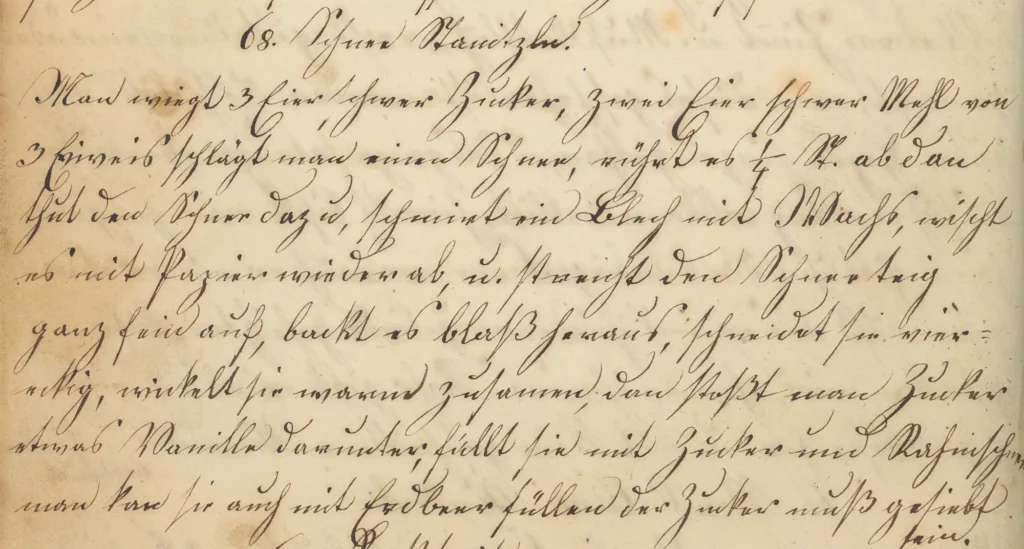 68. Schnee Stanitzln.
Man wiegt 3 Eier schwer Zucker, zwei Eier schwer Mehl von
3 Eiweis schlägt man einen Schnee, rührt es ¼ St. ab dan
thut den Schnee dazu, schmirt ein Blech mit Wachs, wischt
es mit Papier wieder ab, u. streicht den Schneeteig
ganz fein auf, backt es blaß heraus, schneidet sie vier=
eckig, wickelt sie warm zusamen, dan stoßt man Zucker
etwas Vanille darunter, füllt sie mit Zucker und Rahmschnee
man kan sie auch mit Erdbeer füllen der Zucker muß gesiebt
sein.